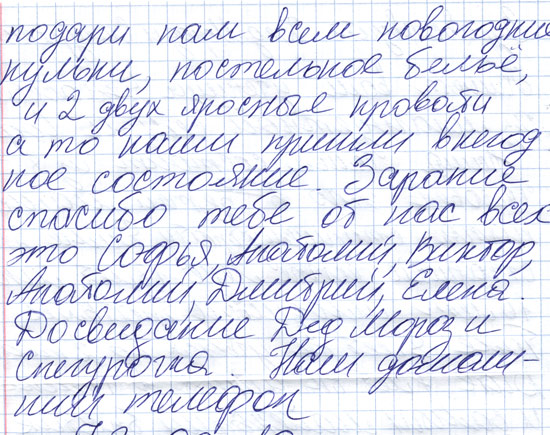 подари нам всем новогодние
пульки, постельное бельё,
и 2 двух яросные кровати
а то наши пришли внегод
ное состояние. Зарание
спасибо тебе от нас всех
это Софья, Анатолий, Виктор,
Анатолий, Дмитрий, Елена.
Досвидание Дед Мороз и
Снегурочка. Наш домаш-
ний телефон